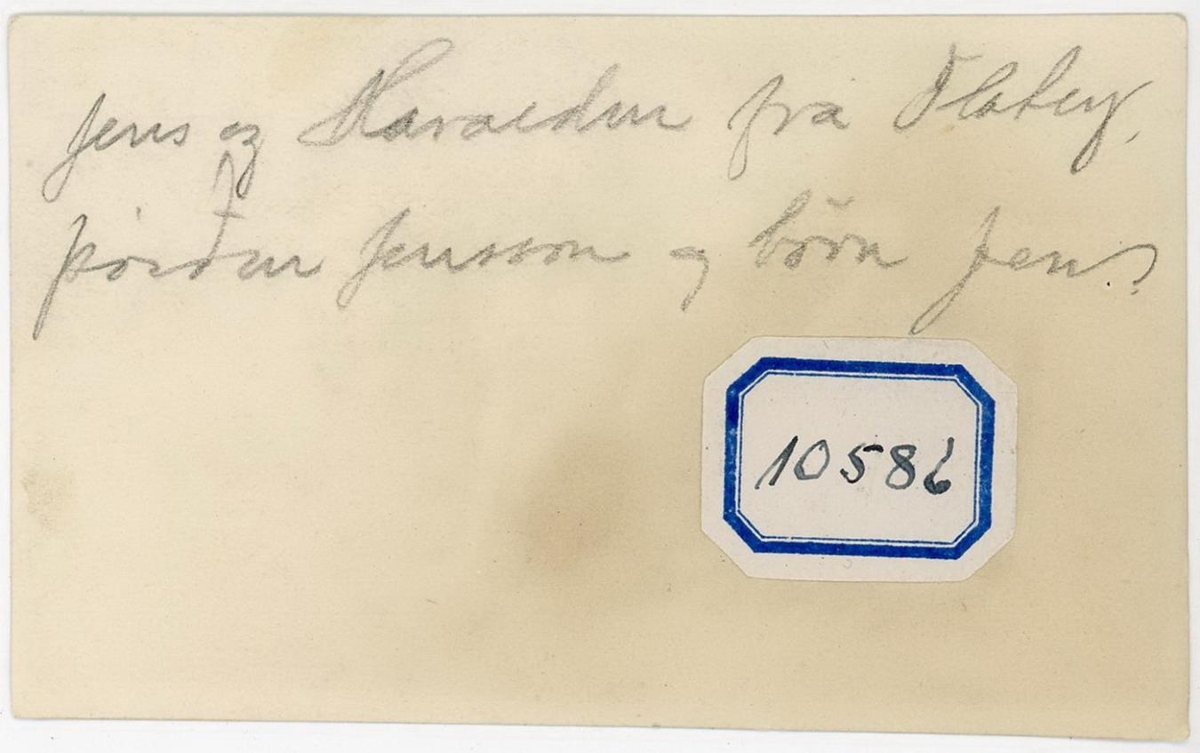 Jens og Haraldur frá Flatey,
Þórður Jensson og börn Jens?
10586